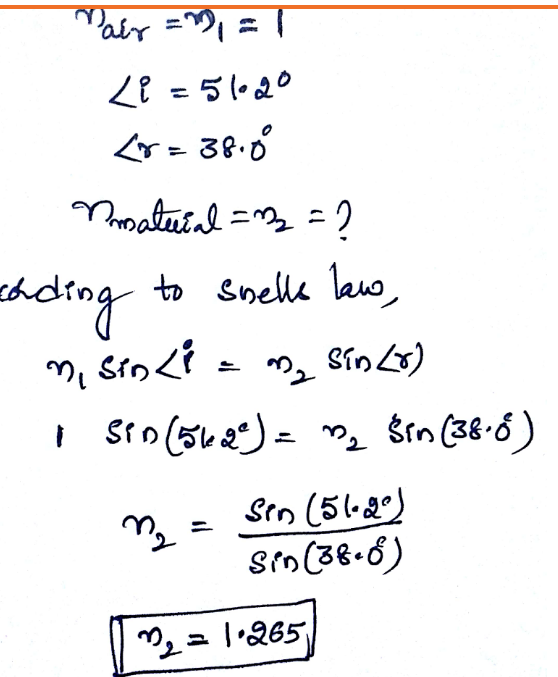 n_air = n₁ = 1
∠i = 51.2°
∠r = 38.0°
n_material = n₂ = ?
cording to snells law,
n₁ sin∠i = n₂ sin∠r)
1 sin(51.2°) = n₂ sin(38.0°)
n₂ = sin(51.2°) / sin(38.0°)
n₂ = 1.265